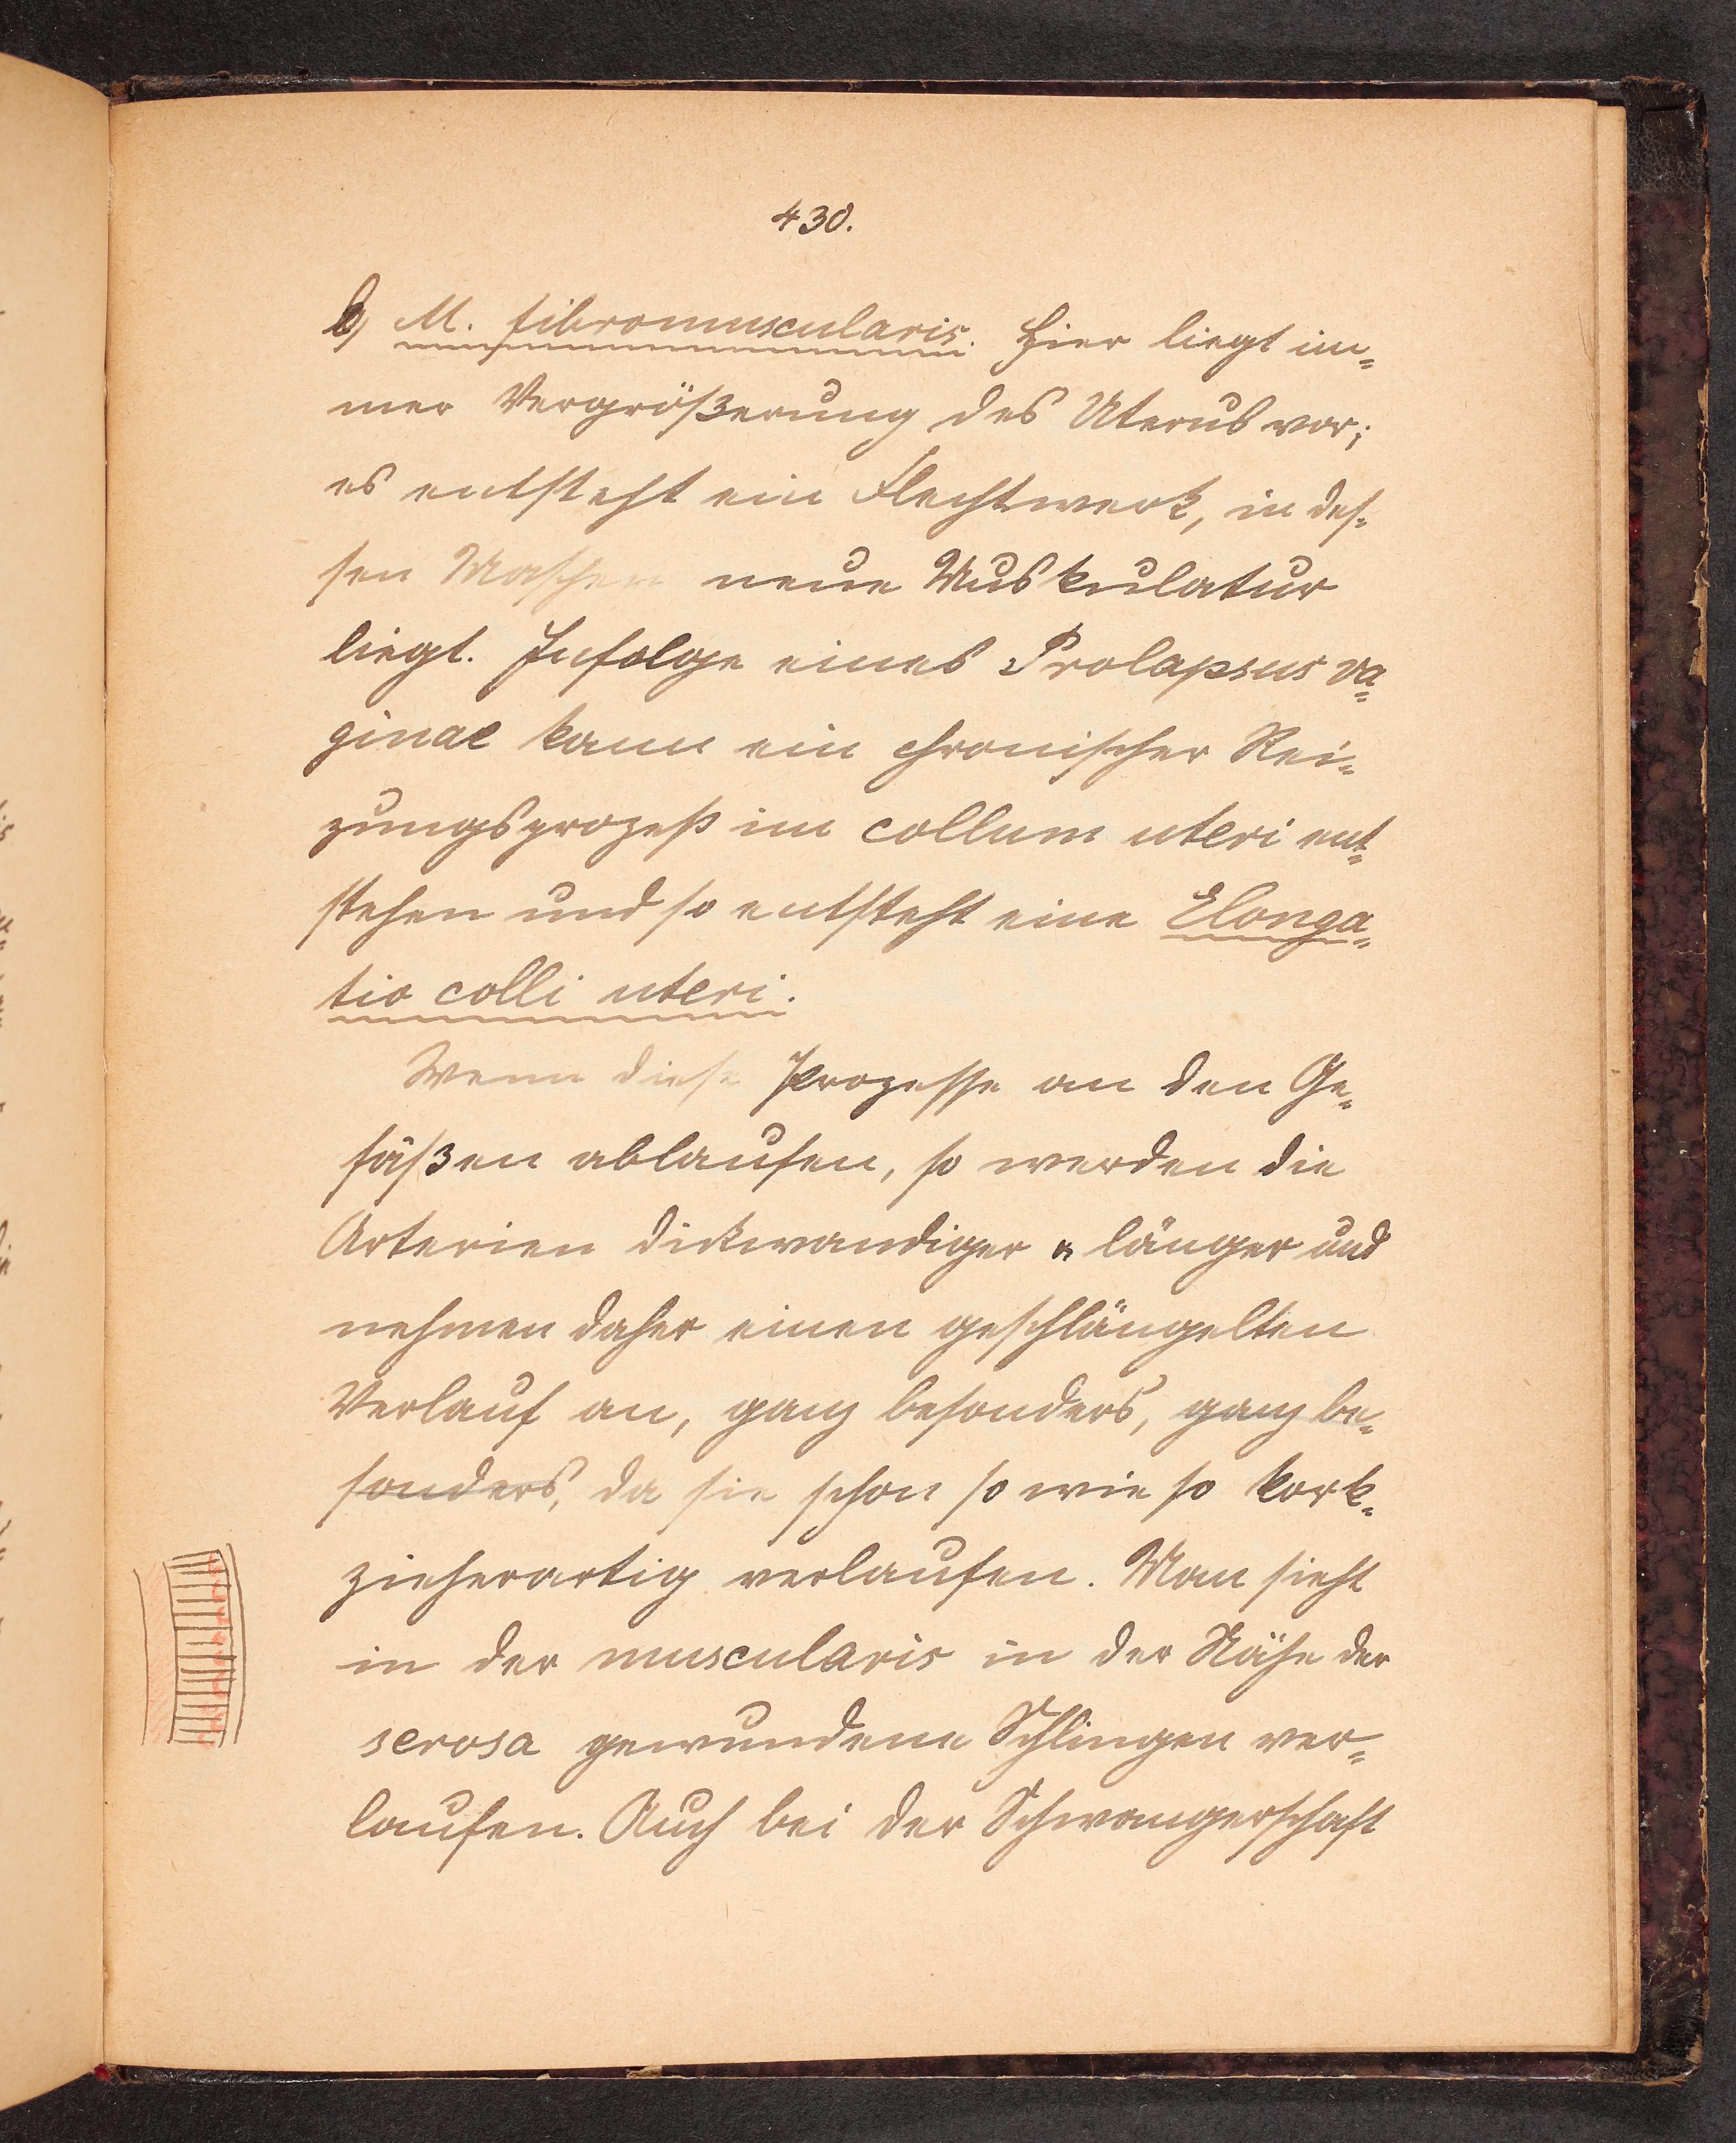 430.
b) M. fibromuscularis. Hier liegt im-
mer Vergrößerung des Uterus vor;
es entsteht ein Flechtwerk, in des-
sen Maschen neue Muskulatur
liegt. Infolge eines Prolapsus va-
ginae kann ein chronischer Rei-
zungsprozeß im collum uteri ent-
stehen und so entsteht eine Elonga-
tio colli uteri.
Wenn diese Prozesse an den Ge-
fäßen ablaufen, so werden die
Arterien dickwandiger u. länger und
nehmen daher einen geschlängelten
Verlauf an, ganz besonders, ganz be-
sonders, da sie schon so wie so kork-
zieherartig verlaufen. Man sieht
in der muscularis in der Nähe der
serosa gewundene Schlingen ver-
laufen. Auch bei der Schwangerschaft